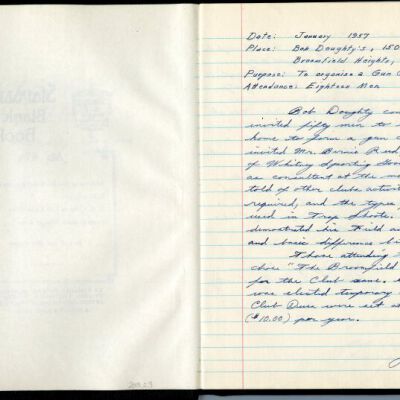 Date: January 1957
Place: Bob Doughty's, 150
Broomfield Heights,
Purpose: To organize a Gun C
Attendance: Eighteen Men
Bob Doughty con
invited fifty men to
home to form a gun c
invited Mr. Bernie Reed,
of Whitney Sporting Goo
as consultant at the me
told of other clubs activit
required, and the types
used in Trap Shoots.
demonstrated his Field a
and basic difference b
Those attending
chose "The Broomfield
for the Club name.
was elected temporary
Club Dues were set a
($10.00) per year.